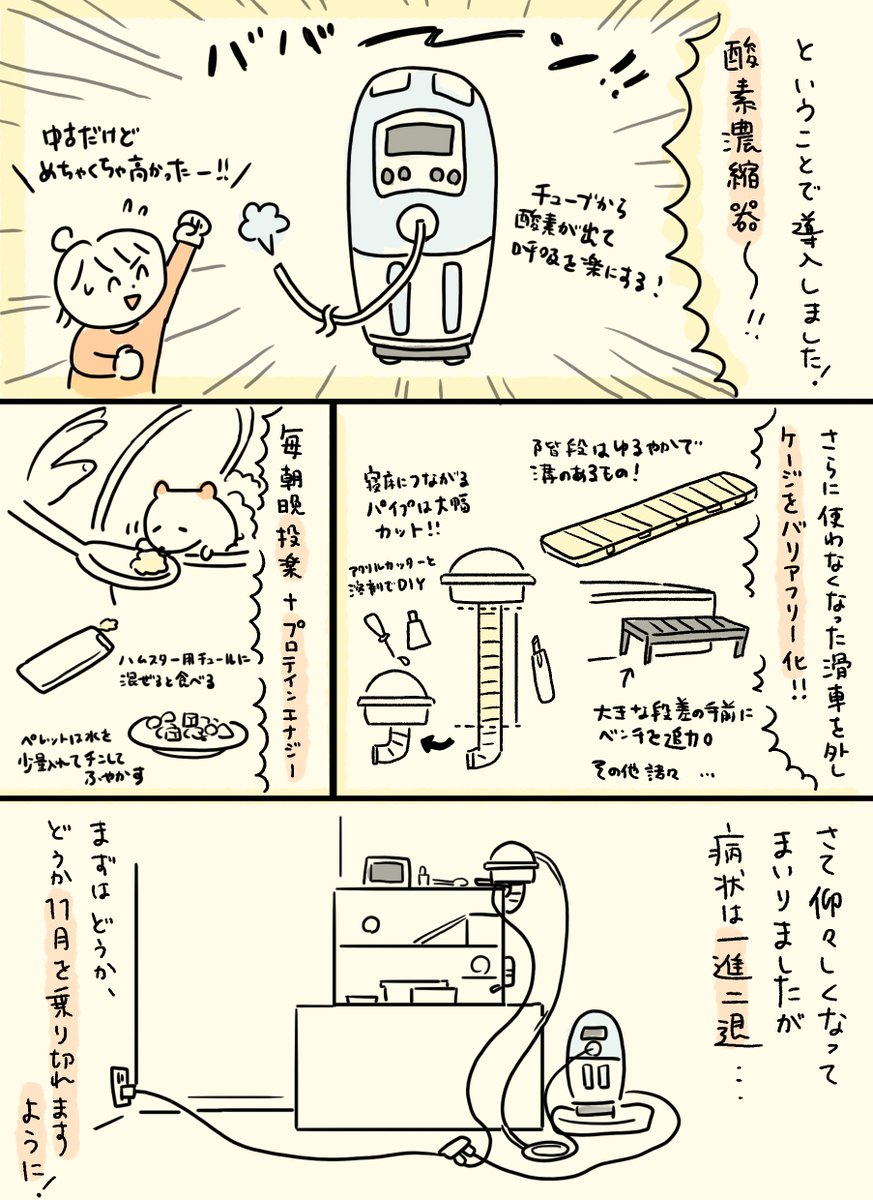 ということで導入しました!
酸素濃縮器〜!!
ババーン!!
チューブから
酸素が出て
呼吸を楽にする!
中古だけど
めちゃくちゃ高かったー!!
さらに使わなくなった滑車を外し
ケージをバリアフリー化!!
階段はゆるやかで
溝のあるもの!
寝床につながる
パイプは大幅
カット!!
アクリルカッターと
溶剤でDIY
大きな段差の手前に
ベンチを追加。
その他諸々…
毎朝晩投薬+プロテインエナジー
ハムスター用チュールに
混ぜると食べる
ペレットは水を
少量入れてチンして
ふやかす
さて仰々しくなって
まいりましたが
病状は一進二退…
まずはどうか、
どうか11月を乗り切れます
ように!